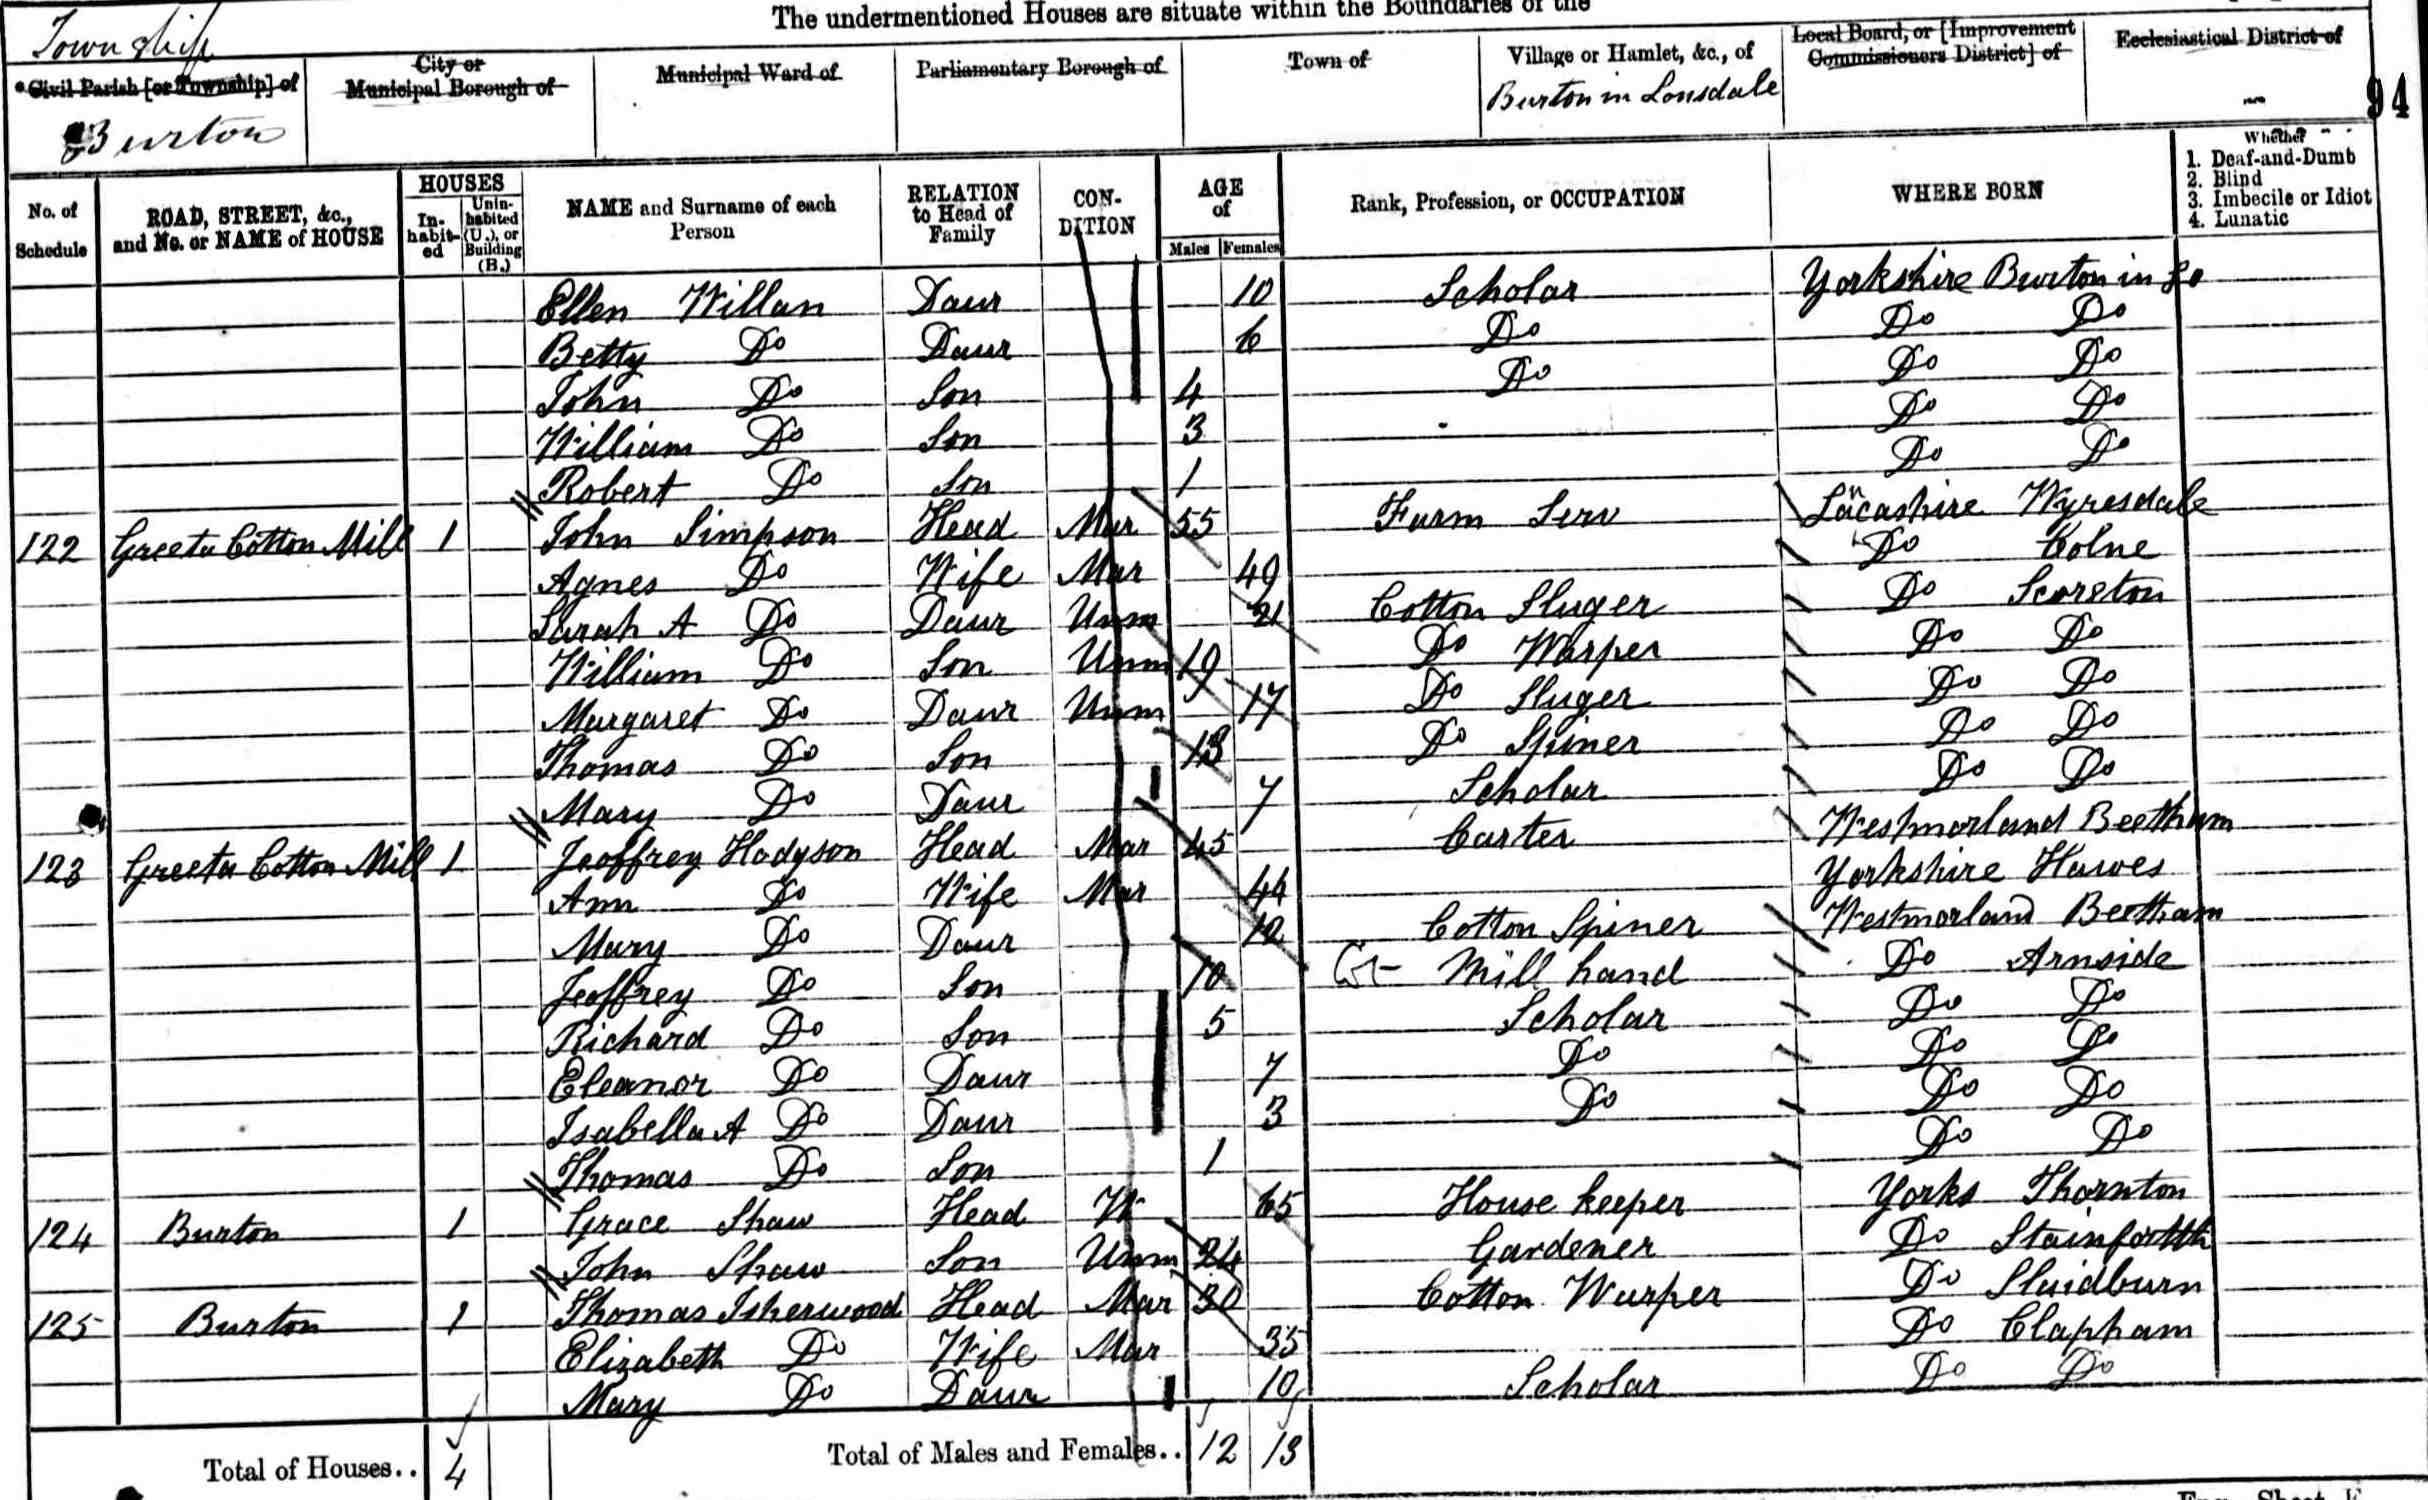 The undermentioned Houses are situate within the Boundaries of the
Township
*Civil Parish [or Township] of
Burton
City or
Municipal Borough of
Municipal Ward of
Parliamentary Borough of
Town of
Village or Hamlet, &c., of
Burton in Lonsdale
Local Board, or [Improvement
Commissioners District] of
Ecclesiastical District of
94
No. of
Schedule
ROAD, STREET, &c.,
and No. or NAME of HOUSE
HOUSES
In-
habit-
ed
Unin-
habited
(U.), or
Building
(B.)
NAME and Surname of each
Person
RELATION
to Head of
Family
CON-
DITION
AGE
of
Males Females
Rank, Profession, or OCCUPATION
WHERE BORN
Whether
1. Deaf-and-Dumb
2. Blind
3. Imbecile or Idiot
4. Lunatic
Ellen Willan Daur 10 Scholar Yorkshire Burton in Lo
Betty Do Daur 6 Do Do Do
John Do Son 4 Do Do Do
William Do Son 3 Do Do
Robert Do Son 1 Do Do
122 Greeta Cotton Mill 1 John Simpson Head Mar 55 Farm Serv Lancashire Wyresdale
Agnes Do Wife Mar 49 Do Colne
Sarah A Do Daur Unm 21 Cotton Sluger Do Scorston
William Do Son Unm 19 Do Warper Do Do
Margaret Do Daur Unm 17 Do Sluger Do Do
Thomas Do Son 13 Do Spiner Do Do
Mary Do Daur 7 Scholar Do Do
123 Greeta Cotton Mill 1 Jeoffrey Hodgson Head Mar 45 Carter Westmorland Beetham
Ann Do Wife Mar 44 Yorkshire Hawes
Mary Do Daur 12 Cotton Spiner Westmorland Beetham
Jeoffrey Do Son 10 Mill hand Do Arnside
Richard Do Son 5 Scholar Do Do
Eleanor Do Daur 7 Do Do Do
Isabella A Do Daur 3 Do Do Do
Thomas Do Son 1 Do Do
124 Burton 1 Grace Shaw Head W 65 House keeper Yorks Thornton
John Shaw Son Unm 24 Gardener Do Stainforth
125 Burton 1 Thomas Isherwood Head Mar 30 Cotton Warper Do Slaidburn
Elizabeth Do Wife Mar 35 Do Clapham
Mary Do Daur 10 Scholar Do Do
Total of Houses.. 4 Total of Males and Females.. 12 13